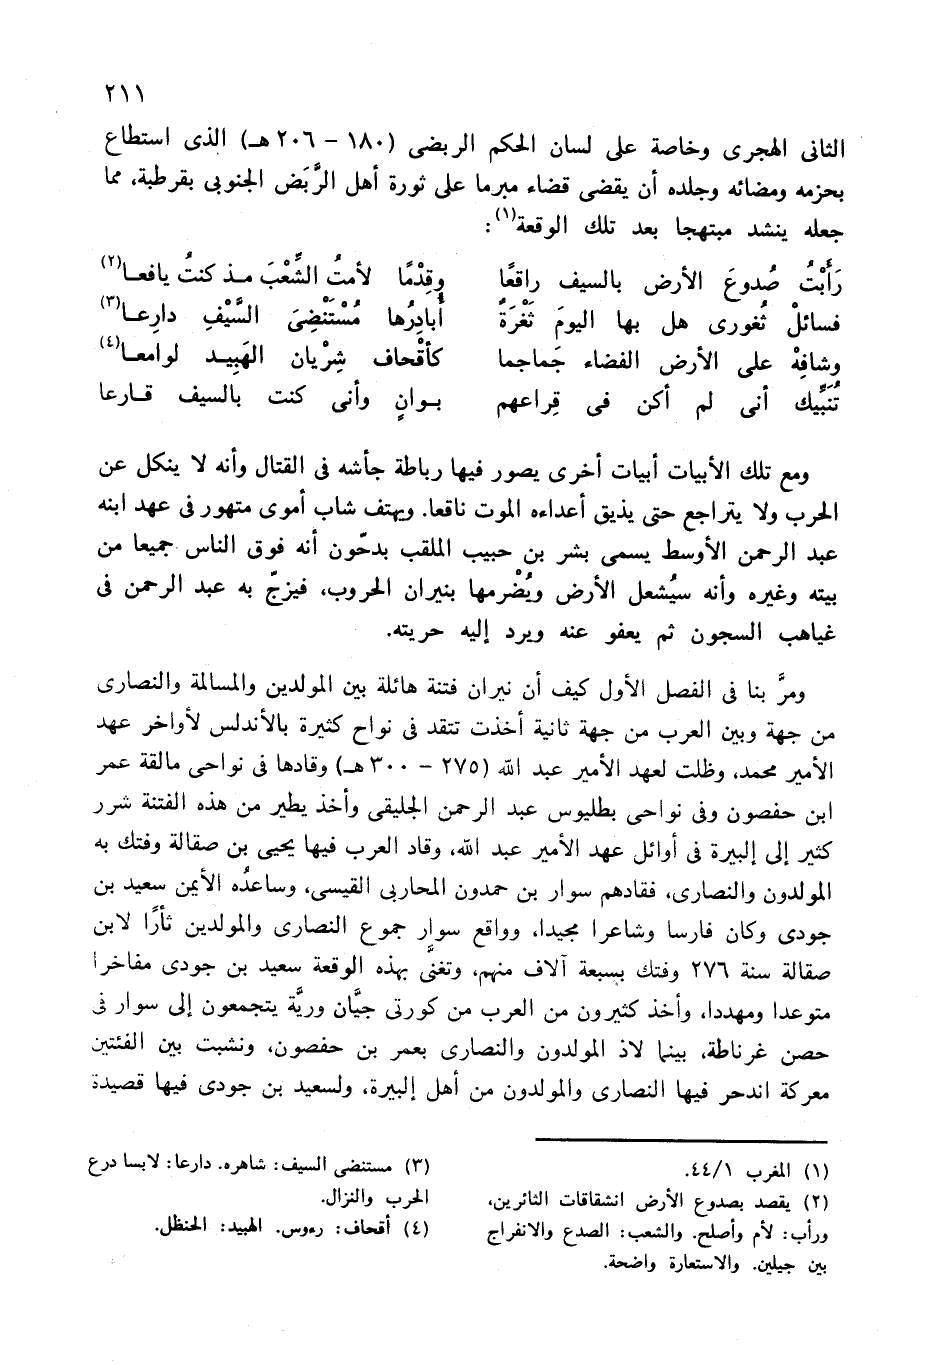 ٢١١
الثانى الهجرى وخاصة على لسان الحكم الربضى (١٨٠ – ٢٠٦ هـ) الذى استطاع
بحزمه ومضائه وجلده أن يقضى قضاء مبرما على ثورة أهل الرَّبَض الجنوبى بقرطبة، مما
جعله ينشد مبتهجا بعد تلك الوقعة(١):
رَأَبْتُ صُدوعَ الأرض بالسيف راقعًا وقِدْمًا لأمتُ الشَّعْبَ مذ كنتُ يافعا(٢)
فسائلْ ثُغورى هل بها اليومَ ثَغْرَةٌ أُبادِرُها مُسْتَنْضِىَ السَّيْفِ دارِعا(٣)
وشافِهْ على الأرض الفضاء جَماجما كأقْحاف شِرْيان الهَبِيد لوامعا(٤)
تُنَبِّيك أنى لم أكن فى قِراعهم بوانٍ وأنى كنت بالسيف قارعا
ومع تلك الأبيات أبيات أخرى يصور فيها رباطة جأشه فى القتال وأنه لا ينكل عن
الحرب ولا يتراجع حتى يذيق أعداءه الموت ناقعا. ويهتف شاب أموى متهور فى عهد ابنه
عبد الرحمن الأوسط يسمى بشر بن حبيب الملقب بدحّون أنه فوق الناس جميعا من
بيته وغيره وأنه سيُشعل الأرض ويُضْرمها بنيران الحروب، فيزجّ به عبد الرحمن فى
غياهب السجون ثم يعفو عنه ويرد إليه حريته.
ومرَّ بنا فى الفصل الأول كيف أن نيران فتنة هائلة بين المولدين والمسالمة والنصارى
من جهة وبين العرب من جهة ثانية أخذت تتقد فى نواح كثيرة بالأندلس لأواخر عهد
الأمير محمد، وظلت لعهد الأمير عبد الله (٢٧٥ – ٣٠٠ هـ) وقادها فى نواحى مالقة عمر
ابن حفصون وفى نواحى بطليوس عبد الرحمن الجليقى وأخذ يطير من هذه الفتنة شرر
كثير إلى إلبيرة فى أوائل عهد الأمير عبد الله، وقاد العرب فيها يحيى بن صقالة وفتك به
المولدون والنصارى، فقادهم سوار بن حمدون المحاربى القيسى، وساعدُه الأيمن سعيد بن
جودى وكان فارسا وشاعرا مجيدا، وواقع سوار جموع النصارى والمولدين ثأرًا لابن
صقالة سنة ٢٧٦ وفتك بسبعة آلاف منهم، وتغنَّى بهذه الوقعة سعيد بن جودى مفاخرا
متوعدا ومهددا، وأخذ كثيرون من العرب من كورتى جيَّان وريَّة يتجمعون إلى سوار فى
حصن غرناطة، بينما لاذ المولدون والنصارى بعمر بن حفصون، ونشبت بين الفئتين
معركة اندحر فيها النصارى والمولدون من أهل إلبيرة، ولسعيد بن جودى فيها قصيدة
(١) المغرب ٤٤/١.
(٢) يقصد بصدوع الأرض انشقاقات الثائرين،
ورأب: لأم وأصلح. والشعب: الصدع والانفراج
بين جبلين. والاستعارة واضحة.
(٣) مستنضى السيف: شاهره. دارعا: لابسا درع
الحرب والنزال.
(٤) أقحاف: رءوس. الهبيد: الحنظل.